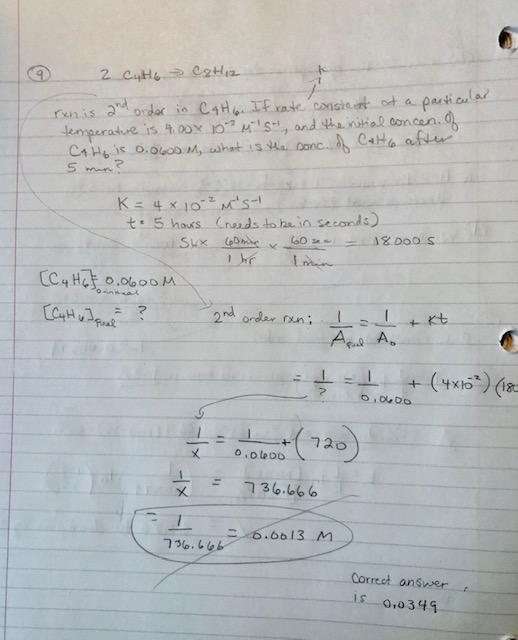 9 2 C4H6 → C8H12 K
rxn is 2nd order in C4H6. If rate constant at a particular
temperature is 4.00 x 10^-2 M^-1 s^-1, and the initial concen. of
C4H6 is 0.0600 M, what is the conc. of C4H6 after
5 min?
K = 4 x 10^-2 M^-1 s^-1
t = 5 hours (needs to be in seconds)
5 hr x 60 min / 1 hr x 60 sec / 1 min = 18000 s
[C4H6]initial = 0.0600 M
[C4H6]final = ?
2nd order rxn: 1/Afinal = 1/A0 + Kt
= 1/? = 1/0.0600 + (4x10^-2) (180
1/x = 1/0.0600 + (720)
1/x = 736.666
= 1/736.666 = 0.0013 M
Correct answer
is 0.0349